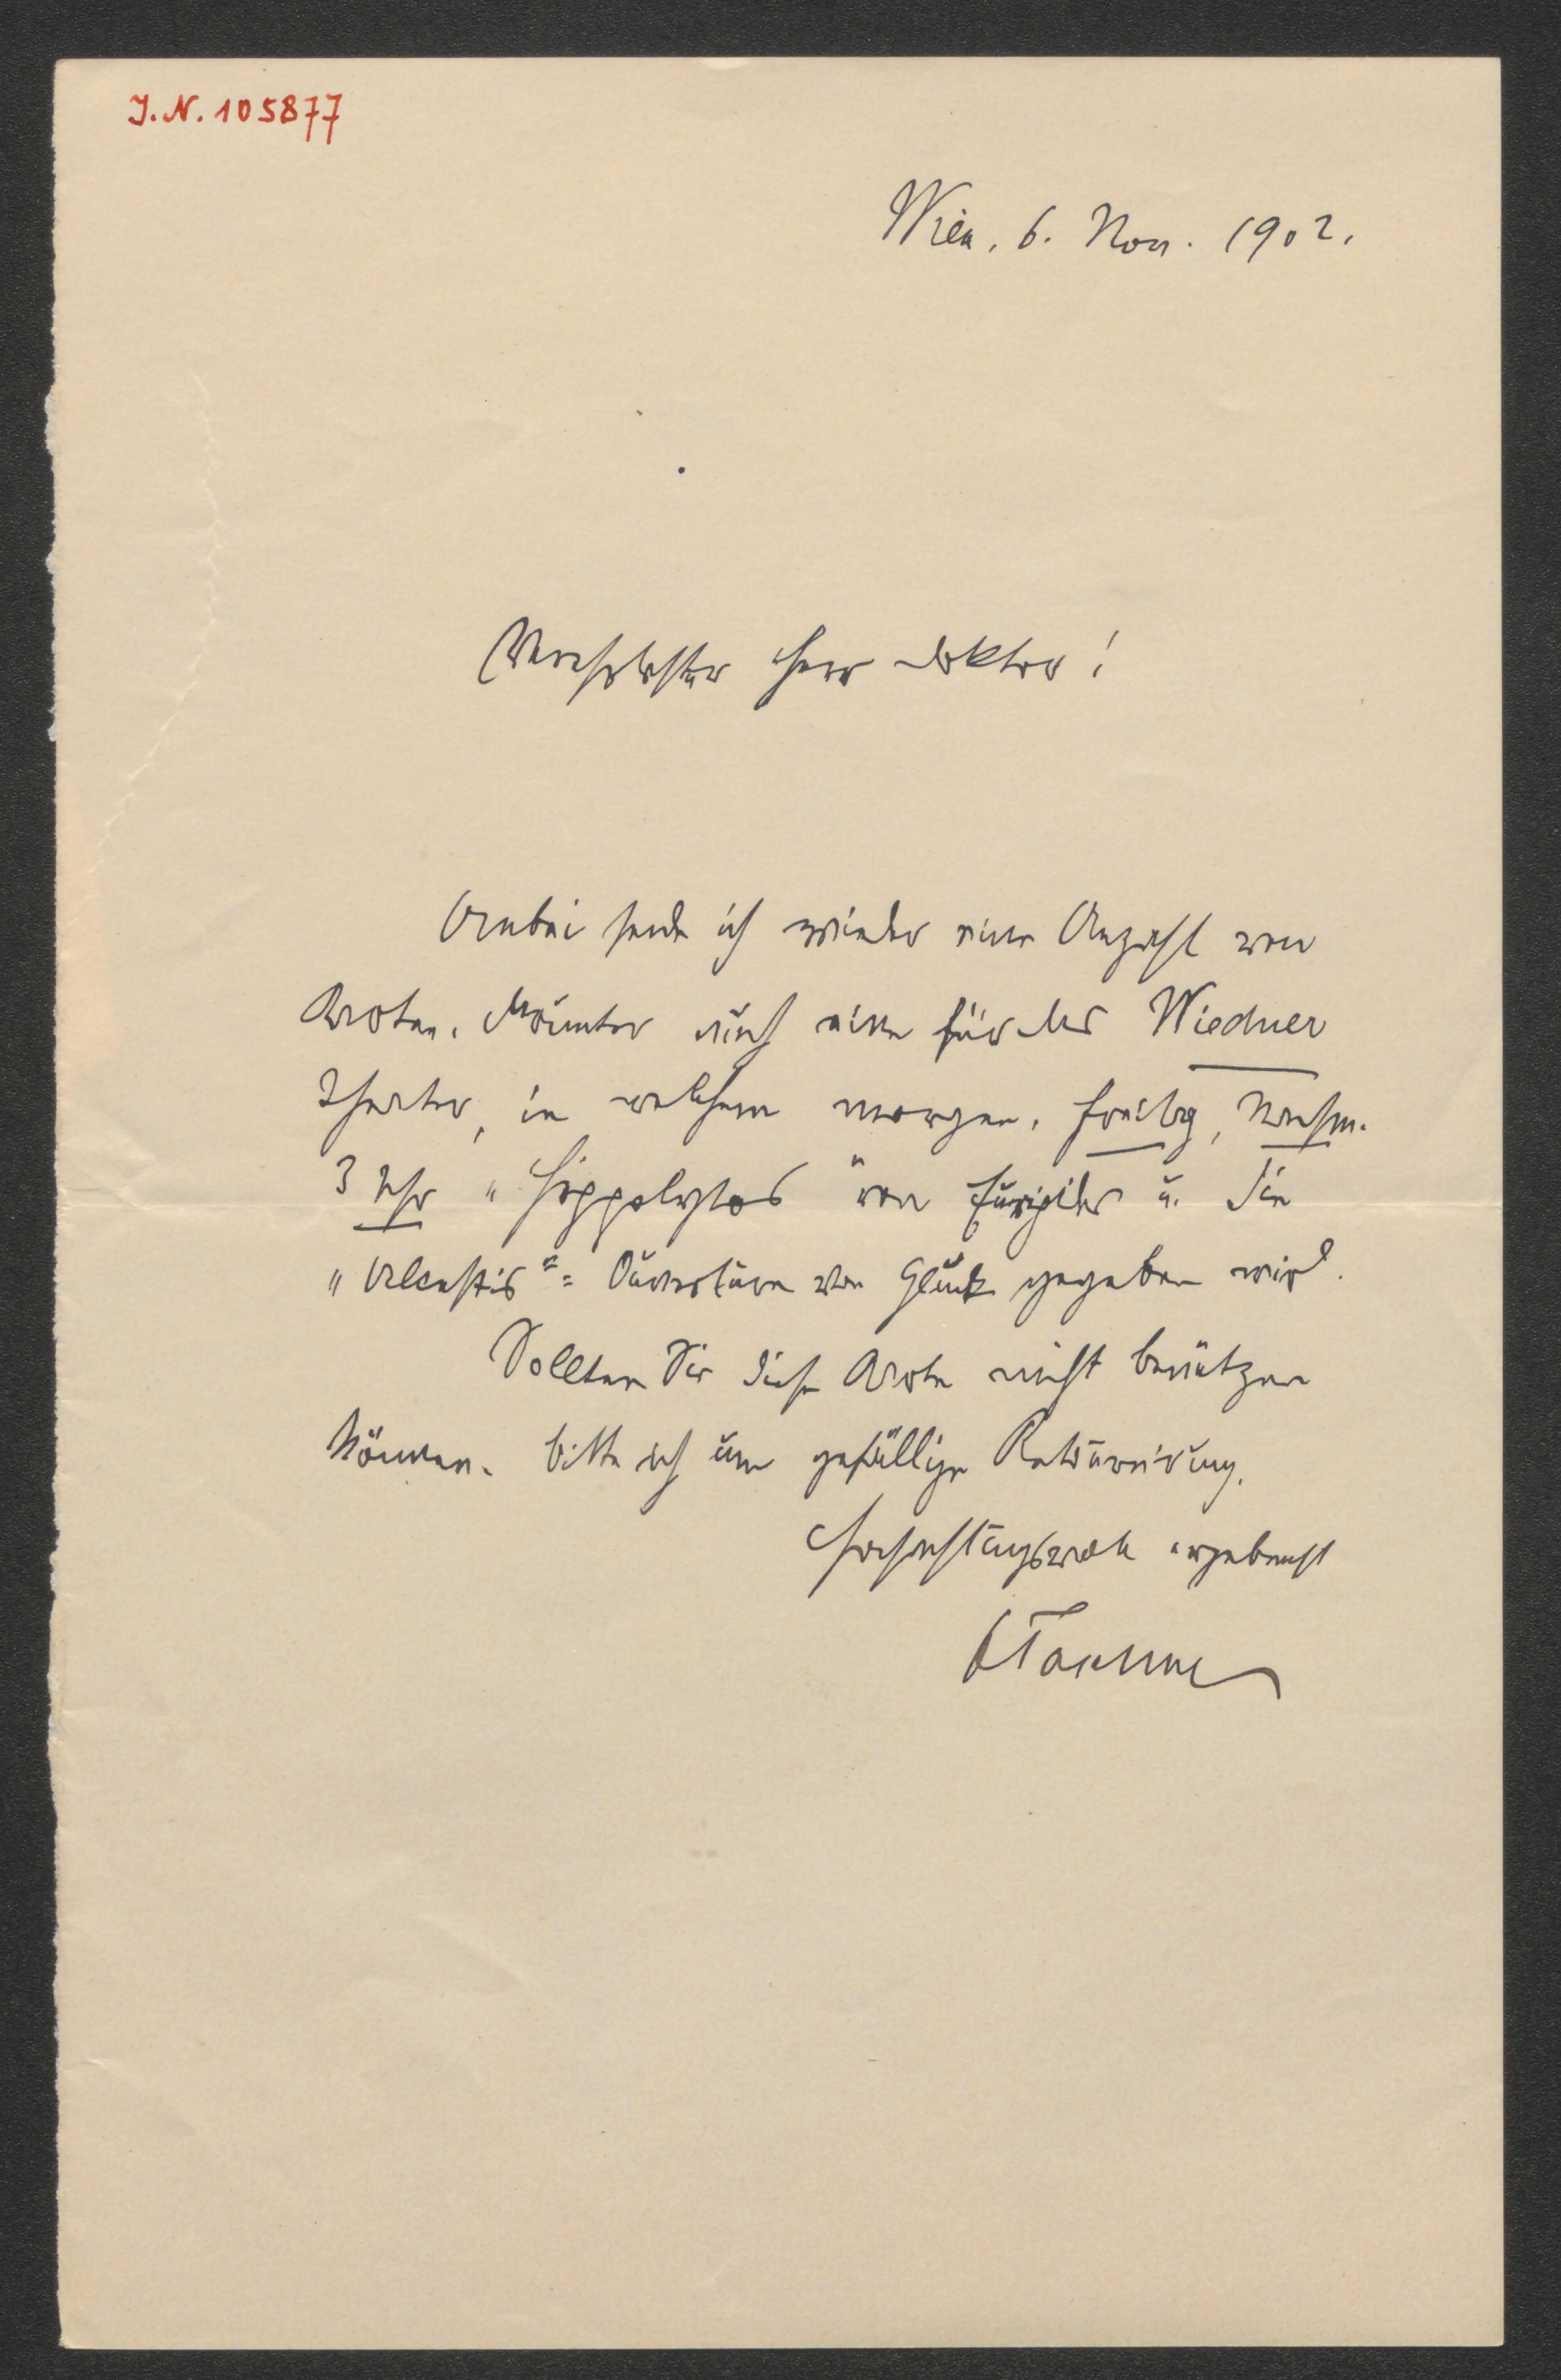 J. N. 105877
Wien, 6. Nov. 1902.
Verehrtester Herr Doktor!
Anbei sende ich wieder eine Anzahl von
Karten, darunter auch eine für das Wiedner
Theater, in welchem morgen, Freitag, Nachm.
3 Uhr "Hippolytos" von Euripides u. die
„Alkestis"= Ouverture von Gluck gegeben wird.
Sollten Sie diese Karte nicht benützen
können, bitte ich um gefällige Retournirung.
Hochachtungsvoll ergebenst